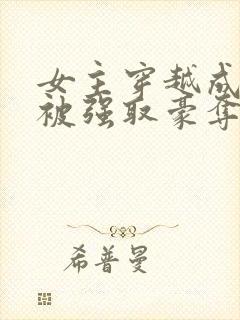 女主穿越成
被强取豪夺
希普曼